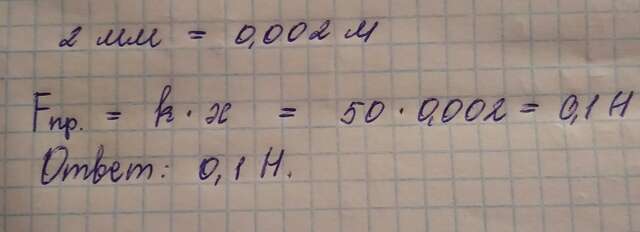 2 мм = 0,002 м
Fпр. = k · x = 50 · 0,002 = 0,1 Н
Ответ: 0,1 Н.